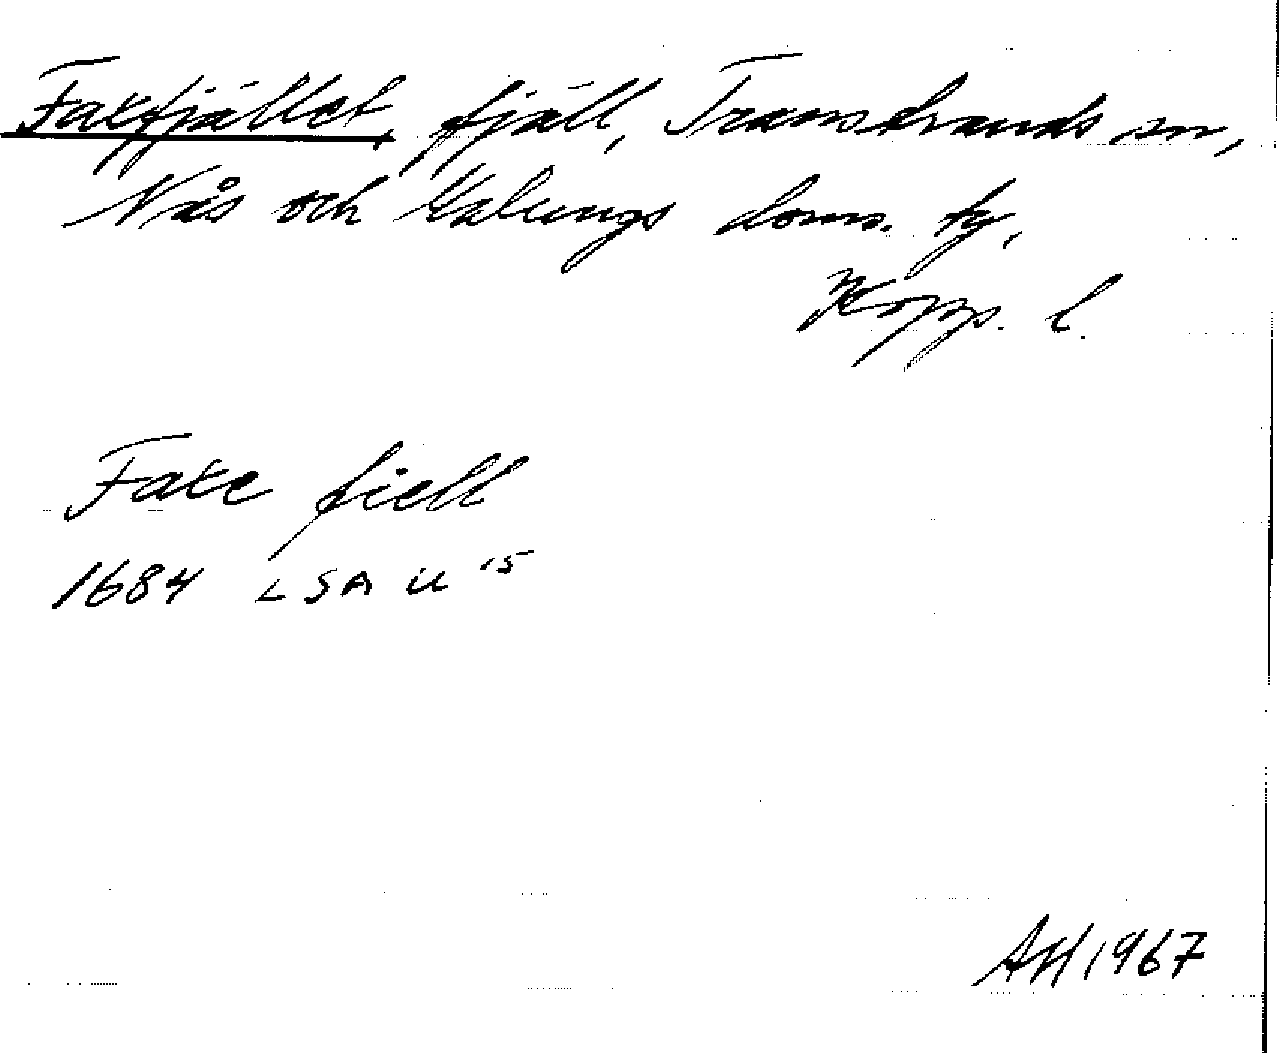 Faxefjället, fjäll, Transtrands sn,
Nås och Malungs doms. tg,
Kopp. l.
Faxe fiell
1684 LSA U 15
AH 1967